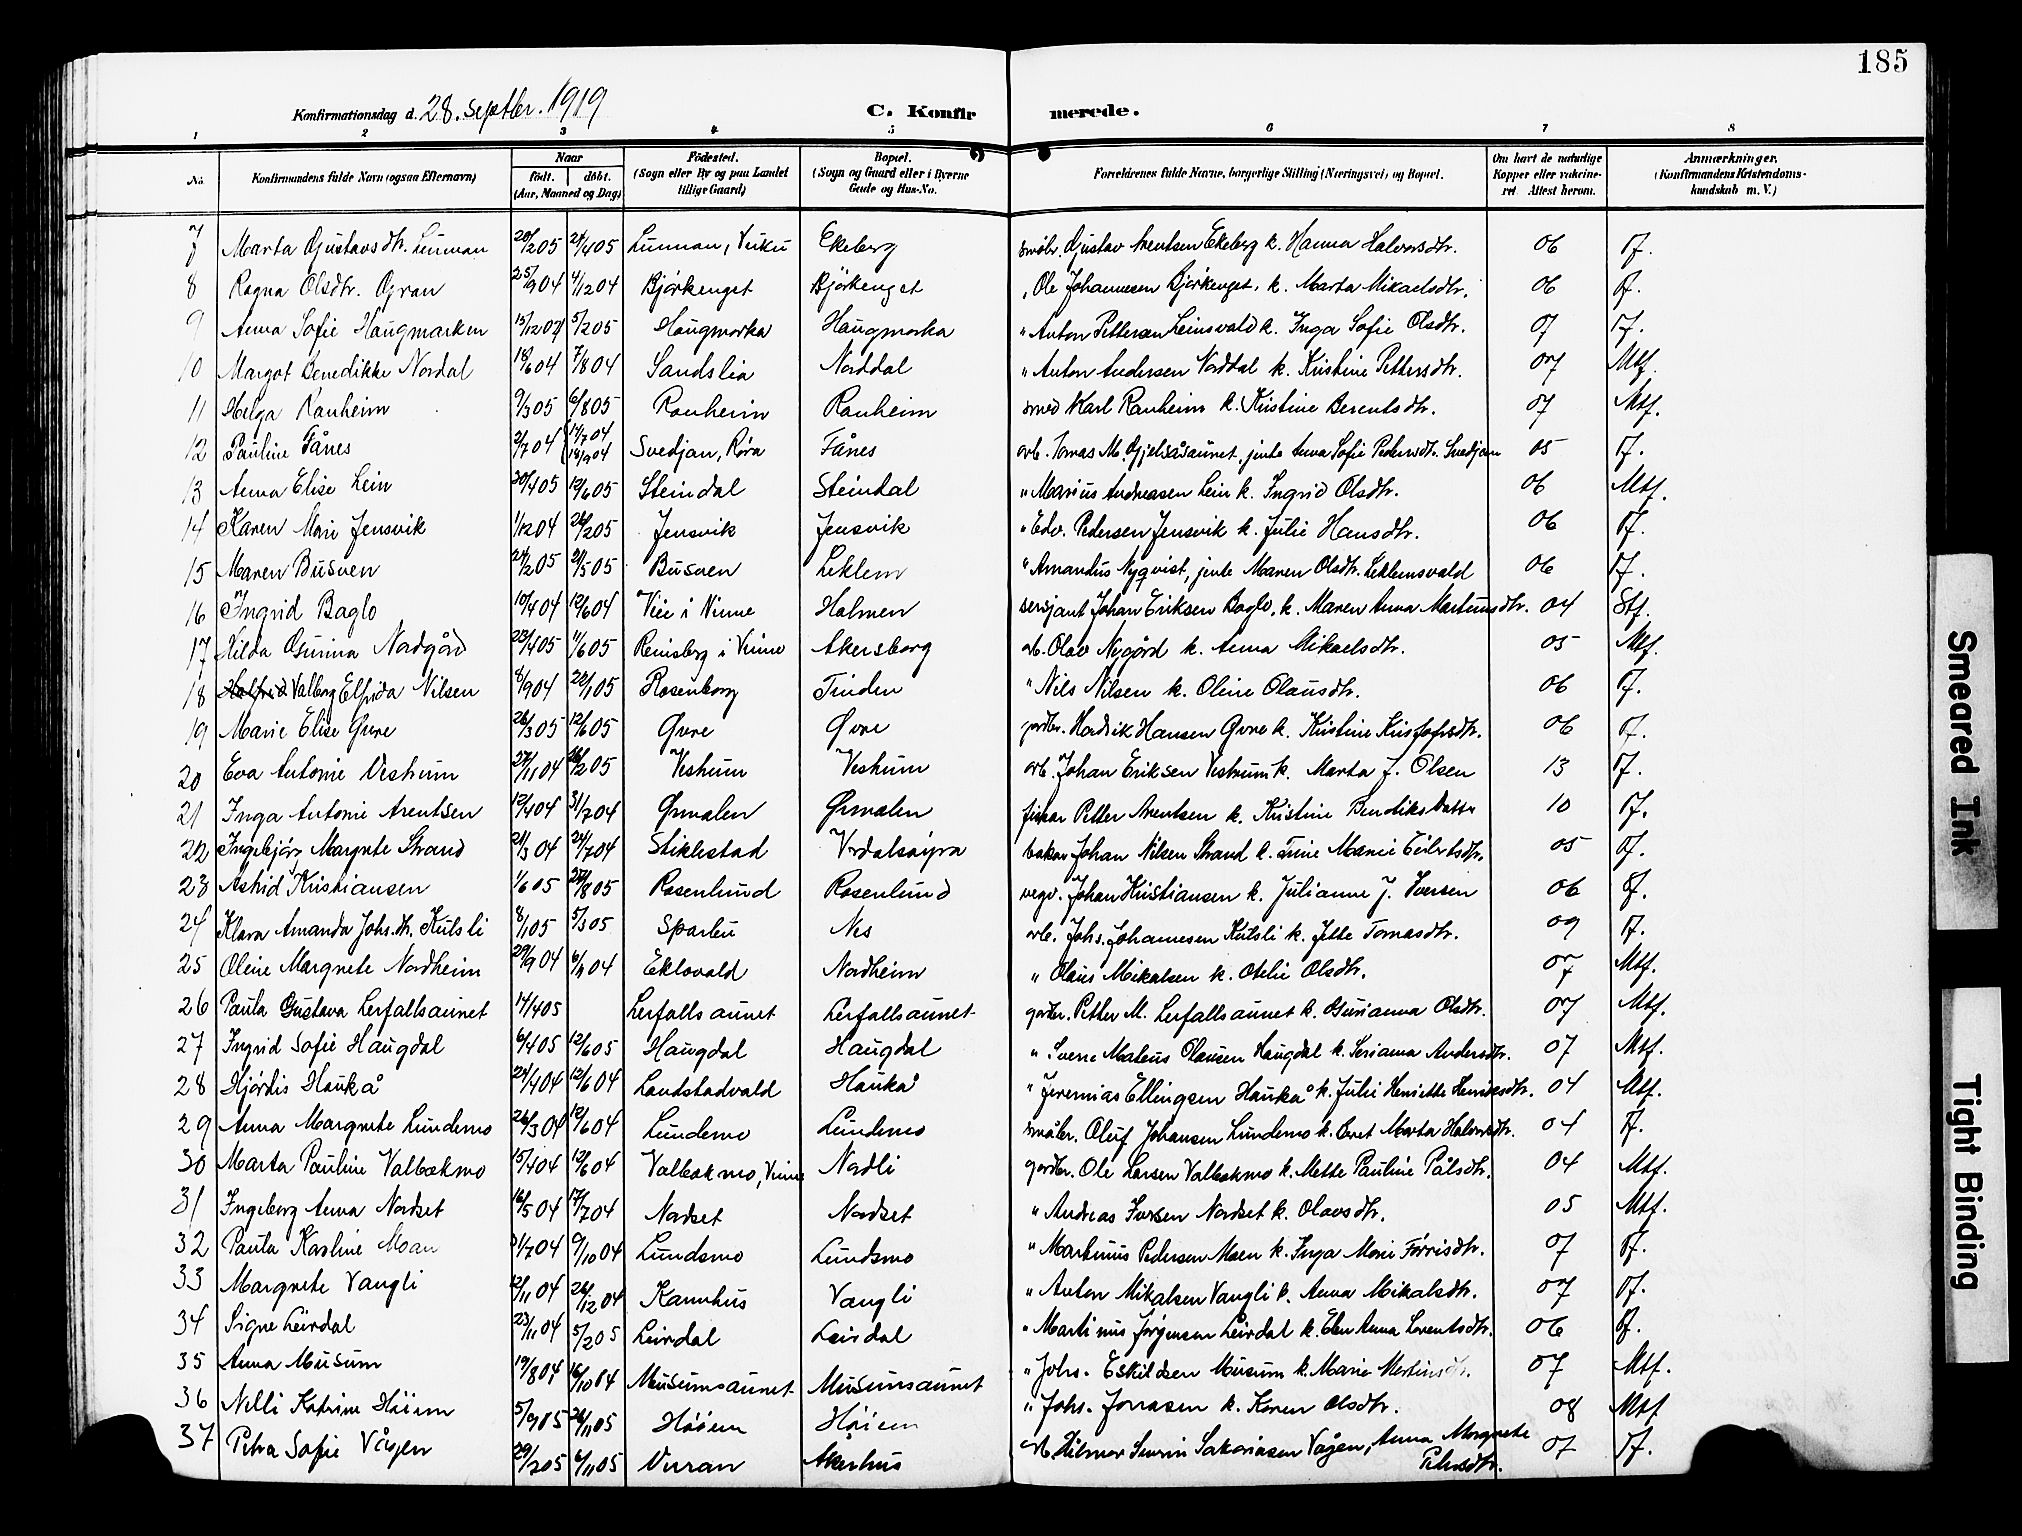 185
Konfirmationsdag d. 28. septbr. 1919 C. Konfirmerede.
1 2 3 4 5 6 7 8
No. Konfirmandens fulde Navn (ogsaa Efternavn) Naar født. døbt. (Aar, Maaned og Dag) Fødested. (Sogn eller By og paa Landet tillige Gaard) Bopæl. (Sogn og Gaard eller i Byerne Gade og Hus-No. Forældrenes fulde Navne, borgerlige Stilling (Næringsvei) og Bopæl. Om havt de naturlige Kopper eller vakcineret. Attest herom. Anmærkninger. (Konfirmandens Kristendomskundskab m. V.)
7 Marta Gustavsdtr. Lunnan 20/2 05 24/4 05 Lunnan, Vuku Ekeberg småbr. Gustav Arentsen Ekeberg k. Hanna Halvorsdtr. 06 Tf.
8 Ragna Olsdtr. Gran 25/9 04 4/12 04 Bjørkenget Bjørkenget " Ole Johannesen Bjørkenget, k. Marta Mikaelsdtr. 06 Tf.
9 Anna Sofie Haugmarken 13/12 04 5/2 05 Haugmarka Haugmarka " Anton Pettersen Leinsvald k. Inga Sofie Olsdtr. 07 Tf.
10 Margot Benedikke Nordal 18/6 04 7/8 04 Sandslia Norddal " Anton Andersen Norddal k. Kristine Pettersdtr. 07 Mtf.
11 Helga Ranheim 9/3 05 6/8 05 Ranheim Ranheim smed Karl Ranheim k. Kristine Berentsdtr. 07 Mtf.
12 Pauline Fånes 2/7 04 17/7 04 18/9 04 Svedjan, Røra Fånes arb. Tomas M. Gjelsåsaunet, jente Anna Sofie Pedersdtr. Svedjan 05 Tf.
13 Anna Elise Lein 20/4 05 12/6 05 Steindal Steindal " Marius Andreassen Lein k. Ingrid Olsdtr. 06 Mtf.
14 Karen Marie Jensvik 1/12 04 26/2 05 Jensvik Jensvik " Edv. Pedersen Jensvik k. Julie Hansdtr. 06 Tf.
15 Maren Busven 24/2 05 21/5 05 Busven Leklem " Amandus Nyqvist, jente Maren Olsdtr. Leklemsvald 06 Tf.
16 Ingrid Baglo 10/4 04 12/6 04 Veie i Vinne Halmen sersjant Johan Eriksen Baglo, k. Maren Anna Martinusdtr. 04 Stf.
17 Hilda Gurina Nordgård 23/4 05 11/6 05 Reinsberg i Vinne Akersborg arb. Olav Nygård k. Anna Mikaelsdtr. 05 Mtf.
18 Valborg Elfrida Nilsen 8/9 04 22/1 05 Rosenborg Tinden " Nils Nilsen k. Oline Olausdtr. 06 Tf.
19 Marie Elise Øvre 26/3 05 12/6 05 Øvre Øvre gardbr. Hendrik Hansen Øvre k. Kristine Kristofersdtr. 06 Tf.
20 Eva Antonie Vestrum 27/11 04 26/2 05 Vestrum Vestrum arb. Johan Eriksen Vestrum k. Marta J. Olsen 13 Tf.
21 Inga Antonie Arentsen 12/4 04 31/7 04 Ørmalen Ørmalen fisker Petter Arentsen k. Kristine Bendiksdatter 10 Tf.
22 Ingebjørg Margrete Strand 21/3 04 24/7 04 Stiklestad Verdalsøyra baker Johan Nilsen Strand k. Trine Marie Eilertsdtr. 05 Tf.
23 Astrid Kristiansen 1/6 05 27/8 05 Rosenlund Rosenlund vegv. Johan Kristiansen k. Julianne J. Iversen 06 Tf.
24 Klara Amanda Johs.dtr. Kulsli 8/1 05 5/3 05 Sparbu Nes arb. Johs. Johannesen Kulsli k. Jette Tomasdtr. 09 Tf.
25 Oline Margrete Nordheim 29/9 04 6/11 04 Eklovald Nordheim " Olaus Mikalsen k. Otelie Olsdtr. 07 Mtf.
26 Paula Gustava Lerfallsaunet 14/4 05 Lerfallsaunet Lerfallsaunet gardbr. Petter M. Lerfallsaunet k. Gurianna Olsdtr. 07 Mtf.
27 Ingrid Sofie Haugdal 6/4 05 12/6 05 Haugdal Haugdal " Sverre Mateus Olausen Haugdal k. Serianna Andersdtr. 07 Mtf.
28 Hjørdis Haukå 24/4 04 12/6 04 Landstadvald Haukå " Jeremias Ellingsen Haukå k. Julie Henriette Henriksdtr. 04 Mtf.
29 Anna Margrete Lundemo 26/3 04 12/6 04 Lundemo Lundemo småbr. Oluf Johansen Lundemo k. Beret Marta Halvorsdtr. 04 Tf.
30 Marta Pauline Valbækmo 15/4 04 12/6 04 Valbækmo, Vinne Nordli gardbr. Ole Larsen Valbekmo k. Mette Pauline Pålsdtr. 04 Mtf.
31 Ingeborg Anna Nordset 16/5 04 17/7 04 Nordset Nordset " Andreas Iversen Nordset k. Olavsdtr. 05 Mtf.
32 Paula Karline Moan 31/7 04 9/10 04 Lundsmo Lundsmo " Martinus Pedersen Moen k. Inga Marie Torrisdtr. 07 Tf.
33 Margrete Vangli 12/11 04 26/12 04 Karmhus Vangli " Anton Mikalsen Vangli k. Anna Mikalsdtr. 07 Tf.
34 Signe Leirdal 23/11 04 5/2 05 Leirdal Leirdal " Martinus Jørgensen Leirdal k. Elen Anna Lorentsdtr. 06 Tf.
35 Anna Musum 19/8 04 16/10 04 Musumsaunet Musumsaunet " Johs. Eskildsen Musum k. Marie Martinsdtr. 07 Mtf.
36 Nelli Katrine Høiem 5/9 05 26/11 05 Høiem Høiem " Johs. Jonasen k. Karen Olsdtr. 08 Mtf
37 Petra Sofie Vågen 29/2 05 6/11 05 Virran Akerhus arb. Hilmar Severin Sakariasen Vågen, Anna Margrete Petersdtr. 07 Tf.
Smeared Ink
Tight Binding